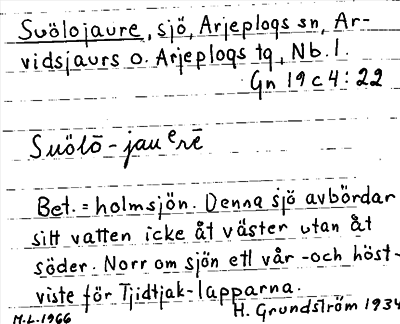 Suölojaure, sjö, Arjeplogs sn, Ar-
vidsjaurs o. Arjeplogs tg, Nb. l.
Gn 19 c 4: 22
Suölō-jauᵉrē
Bet. = holmsjön. Denna sjö avbördar
sitt vatten icke åt väster utan åt
söder. Norr om sjön ett vår -och höst-
viste för Tjidtjak-lapparna.
H. Grundström 1934
M.L. 1966